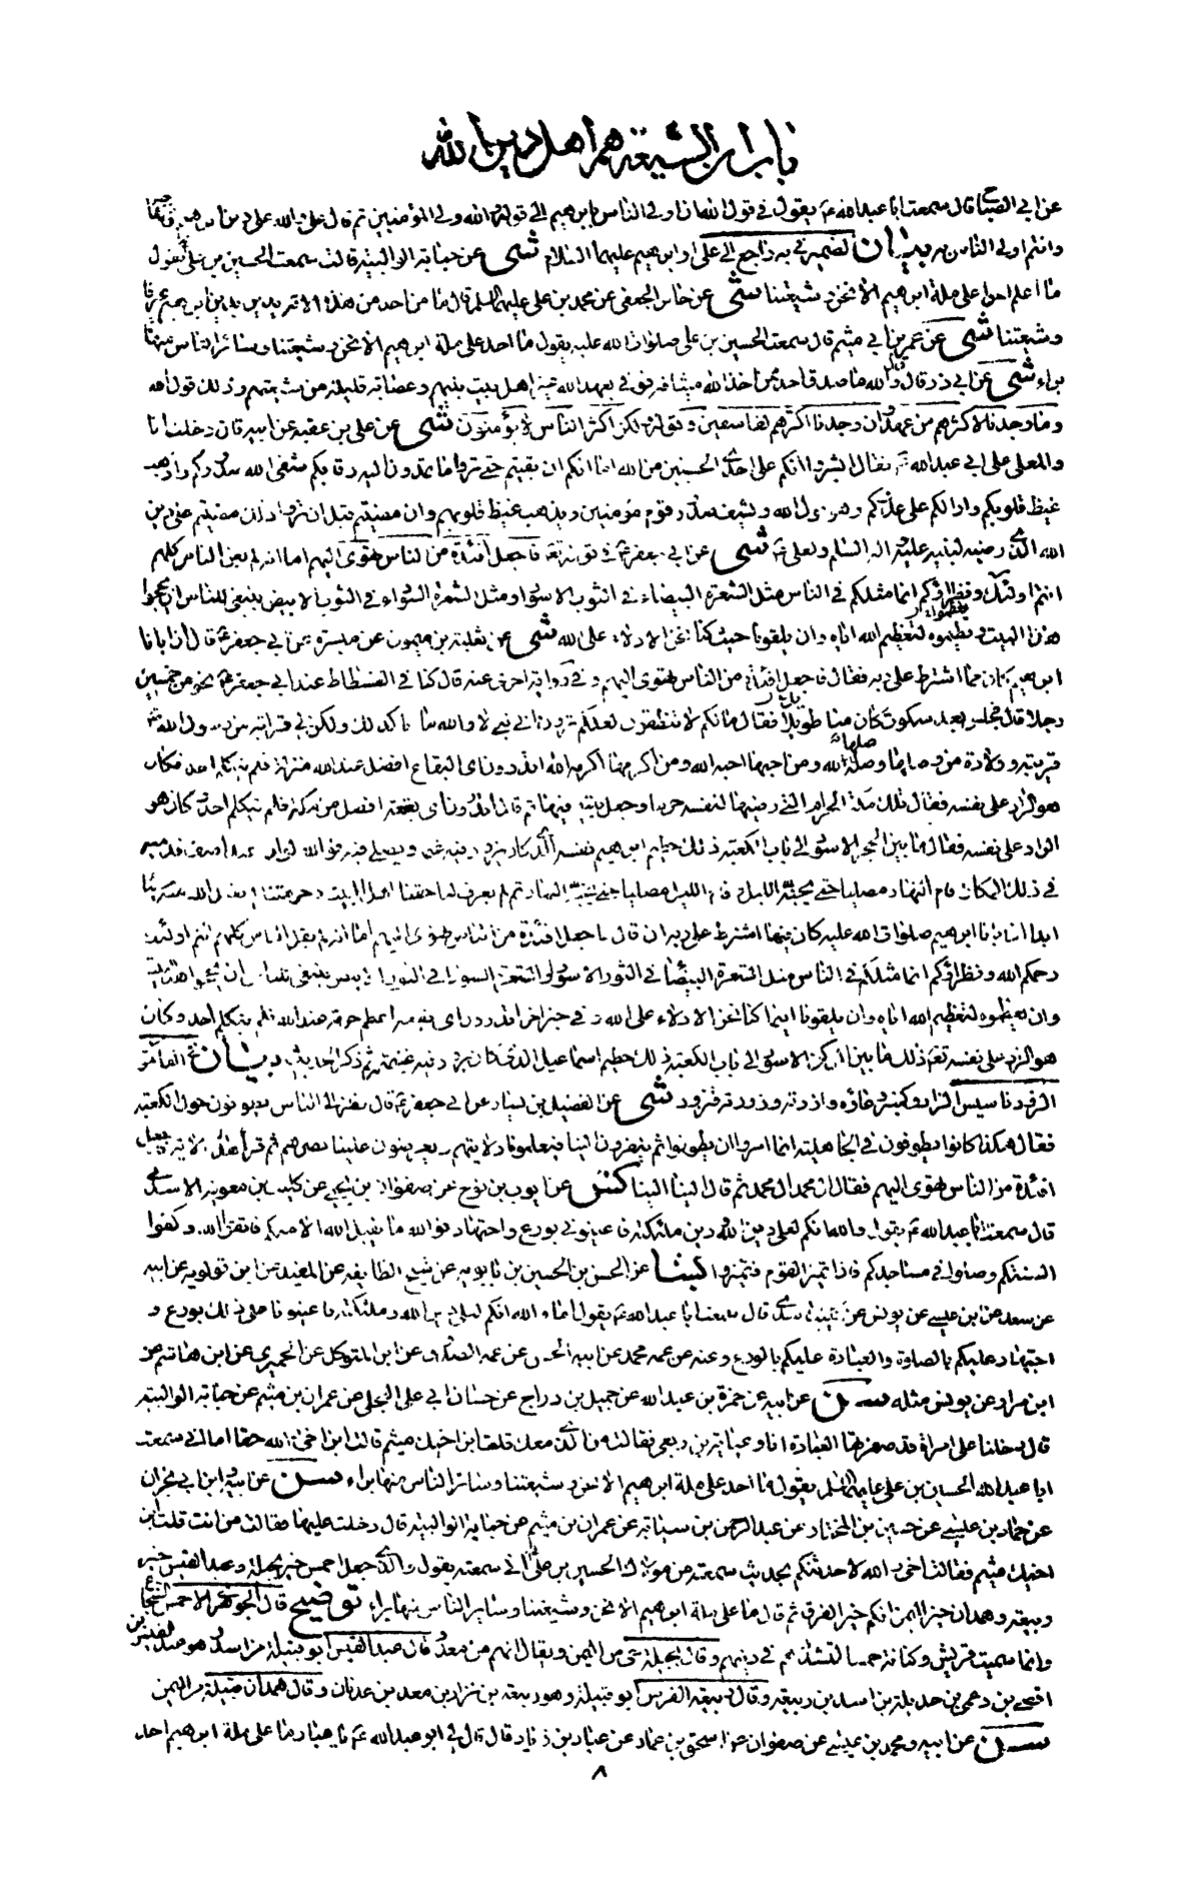 باب ان الشيعة هم اهل دين الله
عن ابي الصباح قال سمعت ابا عبد الله ع يقول في قول الله ان اولى الناس بابرهيم الى قوله والله ولي المؤمنين ثم قال علي والله على دين ابرهيم ومنهاجه
وانتم اولى الناس به بيان الضمير في به راجع الى علي او ابرهيم عليهما السلام شى عن حبابة الوالبية قالت سمعت الحسين بن علي يقول
ما اعلم احدا على ملة ابرهيم الا نحن وشيعتنا شى عن جابر الجعفي عن محمد بن علي عليهما السلم قال ما من احد من هذه الامة يدين بدين ابرهيم غيرنا
وشيعتنا شى عن عمر بن ابي ميثم قال سمعت الحسين بن علي صلوات الله عليه يقول ما احد على ملة ابرهيم الا نحن وشيعتنا وسائر الناس منها
براء شى عن ابي ذر قال والله ما صدق احد ممن اخذ الله ميثاقه فوفى بعهد الله غير اهل بيت نبيهم وعصابة قليلة من شيعتهم وذلك قول الله
وما وجدنا لاكثرهم من عهد وان وجدنا اكثرهم لفاسقين وقوله ولكن اكثر الناس لا يؤمنون شى عن علي بن عقبة عن ابيه قال دخلت انا
والمعلى على ابي عبد الله ع فقال ابشروا انكم على احدى الحسنيين من الله اما انكم ان بقيتم حتى تروا ما تمدون اليه رقابكم شفى الله صدوركم واذهب
غيظ قلوبكم وادالكم على عدوكم وهو قول الله ويشف صدور قوم مؤمنين ويذهب غيظ قلوبهم وان مضيتم قبل ان تروا ذلك مضيتم على دين
الله الذي رضيه لنبيه عليه واله السلم ولعلي ع شى عن ابي جعفر ع في قوله تعه فاجعل افئدة من الناس تهوى اليهم اما انه لم يعن الناس كلهم
انتم اولئك ونظراؤكم انما مثلكم في الناس مثل الشعرة البيضاء في الثوب الاسود او مثل الشعرة السوداء في الثوب الابيض ينبغي للناس ان يحجوا
هذا البيت ويعظموه لتعظيم الله اياه وان يلقونا حيث كنا نحن الادلاء على الله شى عن ثعلبة بن ميمون عن ميسرة عن ابي جعفر ع قال ان ابانا
ابرهيم كان مما اشترط على ربه فقال فاجعل افئدة من الناس تهوى اليهم وفي رواية اخرى عنه قال كنا في الفسطاط عند ابي جعفر ع نحو من خمسين
رجلا قال فجلس بعد سكوت كان منا طويلا فقال مالكم لا تنطقون لعلكم ترون اني نبي لا والله ما انا كذلك ولكن لي قرابة من رسول الله
قريبة وولادة من وصلها وصله الله ومن احبها احبه الله ومن اكرمها اكرمه الله اتدرون اي البقاع افضل عند الله منزلة فلم يتكلم احد فكان
هو الراد على نفسه فقال تلك مكة الحرام التي رضيها لنفسه حرما وجعل بيته فيها ثم قال اتدرون اي بقعة افضل من مكة فلم يتكلم احد فكان هو
الراد على نفسه فقال ما بين الحجر الاسود الى باب الكعبة ذلك حطيم ابرهيم نفسه الذي كان يزود فيه غنمه ويصلي فيه فوالله لو ان عبدا صف قدميه
في ذلك المكان قام النهار مصليا حتى يجنه الليل وقام الليل مصليا حتى يجنه النهار ثم لم يعرف لنا حقنا اهل البيت وحرمتنا لم يقبل الله منه شيئا
ابدا ان ابانا ابرهيم صلوات الله عليه كان فيما اشترط على ربه ان قال فاجعل افئدة من الناس تهوى اليهم اما انه لم يقل الناس كلهم انتم اولئك
رحمكم الله ونظراؤكم انما مثلكم في الناس مثل الشعرة البيضاء في الثور الاسود او الشعرة السوداء في الثور الابيض ينبغي للناس ان يحجوا هذا البيت
وان يعظموه لتعظيم الله اياه وان يلقونا اينما كنا نحن الادلاء على الله وفي خبر اخر اتدرون اي بقعة اعظم حرمة عند الله فلم يتكلم احد وكان
هو الراد على نفسه فقال ذلك ما بين الركن الاسود الى باب الكعبة ذلك حطيم اسماعيل الذي كان يزود فيه غنيمته ثم ذكر الحديث بيان في القاموس
الزود تاسيس الزاد وكمنبر وعاؤه وازدته وزودته فتزود شى عن الفضيل بن يسار عن ابي جعفر ع قال نظر الى الناس يطوفون حول الكعبة
فقال هكذا كانوا يطوفون في الجاهلية انما امروا ان يطوفوا ثم ينفرون الينا فيعلمونا ولايتهم ويعرضون علينا نصرهم ثم قرأ هذه الاية فاجعل
افئدة من الناس تهوى اليهم فقال ال محمد ال محمد ثم قال الينا الينا كش عن ايوب بن نوح عن صفوان بن يحيى عن كليب بن معوية الاسدي
قال سمعت ابا عبد الله ع يقول والله انكم لعلى دين الله ودين ملئكته فاعينوني بورع واجتهاد فوالله ما يقبل الله الا منكم فاتقوا الله وكفوا
السنتكم وصلوا في مساجدكم فاذا تميز القوم فتميزوا بشا عن الحسن بن الحسين بن بابويه عن شيخ الطايفه عن المفيد عن ابن قولويه عن ابيه
عن سعد عن ابن عيسى عن يونس عن كليب الاسدي قال سمعت ابا عبد الله ع يقول اما والله انكم لعلى دين الله وملئكته فاعينونا على ذلك بورع و
اجتهاد عليكم بالصلوة والعبادة عليكم بالورع وعنه عن عمه محمد عن ابيه الحسن عن عمه الصدوق عن ابن المتوكل عن الحميري عن ابن هاشم عن
ابن مرار عن يونس مثله سن عن ابيه عن حمزة بن عبد الله عن جميل بن دراج عن حسان ابي علي العجلي عن عمران بن ميثم عن حبابة الوالبية
قال دخلنا على امراة قد صفرتها العبادة انا وعباية بن ربعي فقالت من الذي معك قلت ابن اخيك ميثم قالت ابن اخي والله حقا اما اني سمعت
ابا عبد الله الحسين بن علي عليهما السلم يقول ما احد على ملة ابرهيم الا نحن وشيعتنا وسائر الناس منها براء سن عن ابيه وابن ابي نجران
عن حماد بن عيسى عن حسين بن المختار عن عبد الرحمن بن سيابة عن عمران بن ميثم عن حبابة الوالبية قال دخلت عليها فقالت من انت قلت ابن
اخيك ميثم فقالت اخي والله لاحدثنكم بحديث سمعته من مولاك الحسين بن علي اني سمعته يقول والذي جعل احمس خير بجيلة وعبد القيس خير
ربيعة وهمدان خير اليمن انكم خير الفرق ثم قال ما على ملة ابرهيم الا نحن وشيعتنا وساير الناس منها براء توضيح قال الجوهري الاحمس الشجاع
وانما سميت قريش وكنانة حمسا لتشددهم في دينهم وقال بجيلة حي من اليمن ويقال انهم من معد وقال عبد القيس ابو قبيلة من اسد وهو عبد القيس بن
افصى بن دعمي بن جديلة بن اسد بن ربيعة وقال ربيعة الفرس ابو قبيلة وهو ربيعة بن نزار بن معد بن عدنان وقال همدان قبيلة من اليمن
سن عن ابيه ومحمد بن عيسى عن صفوان عن اسحق بن عمار عن عباد بن زياد قال قال لي ابو عبد الله ع يا عباد ما على ملة ابرهيم احد
٨